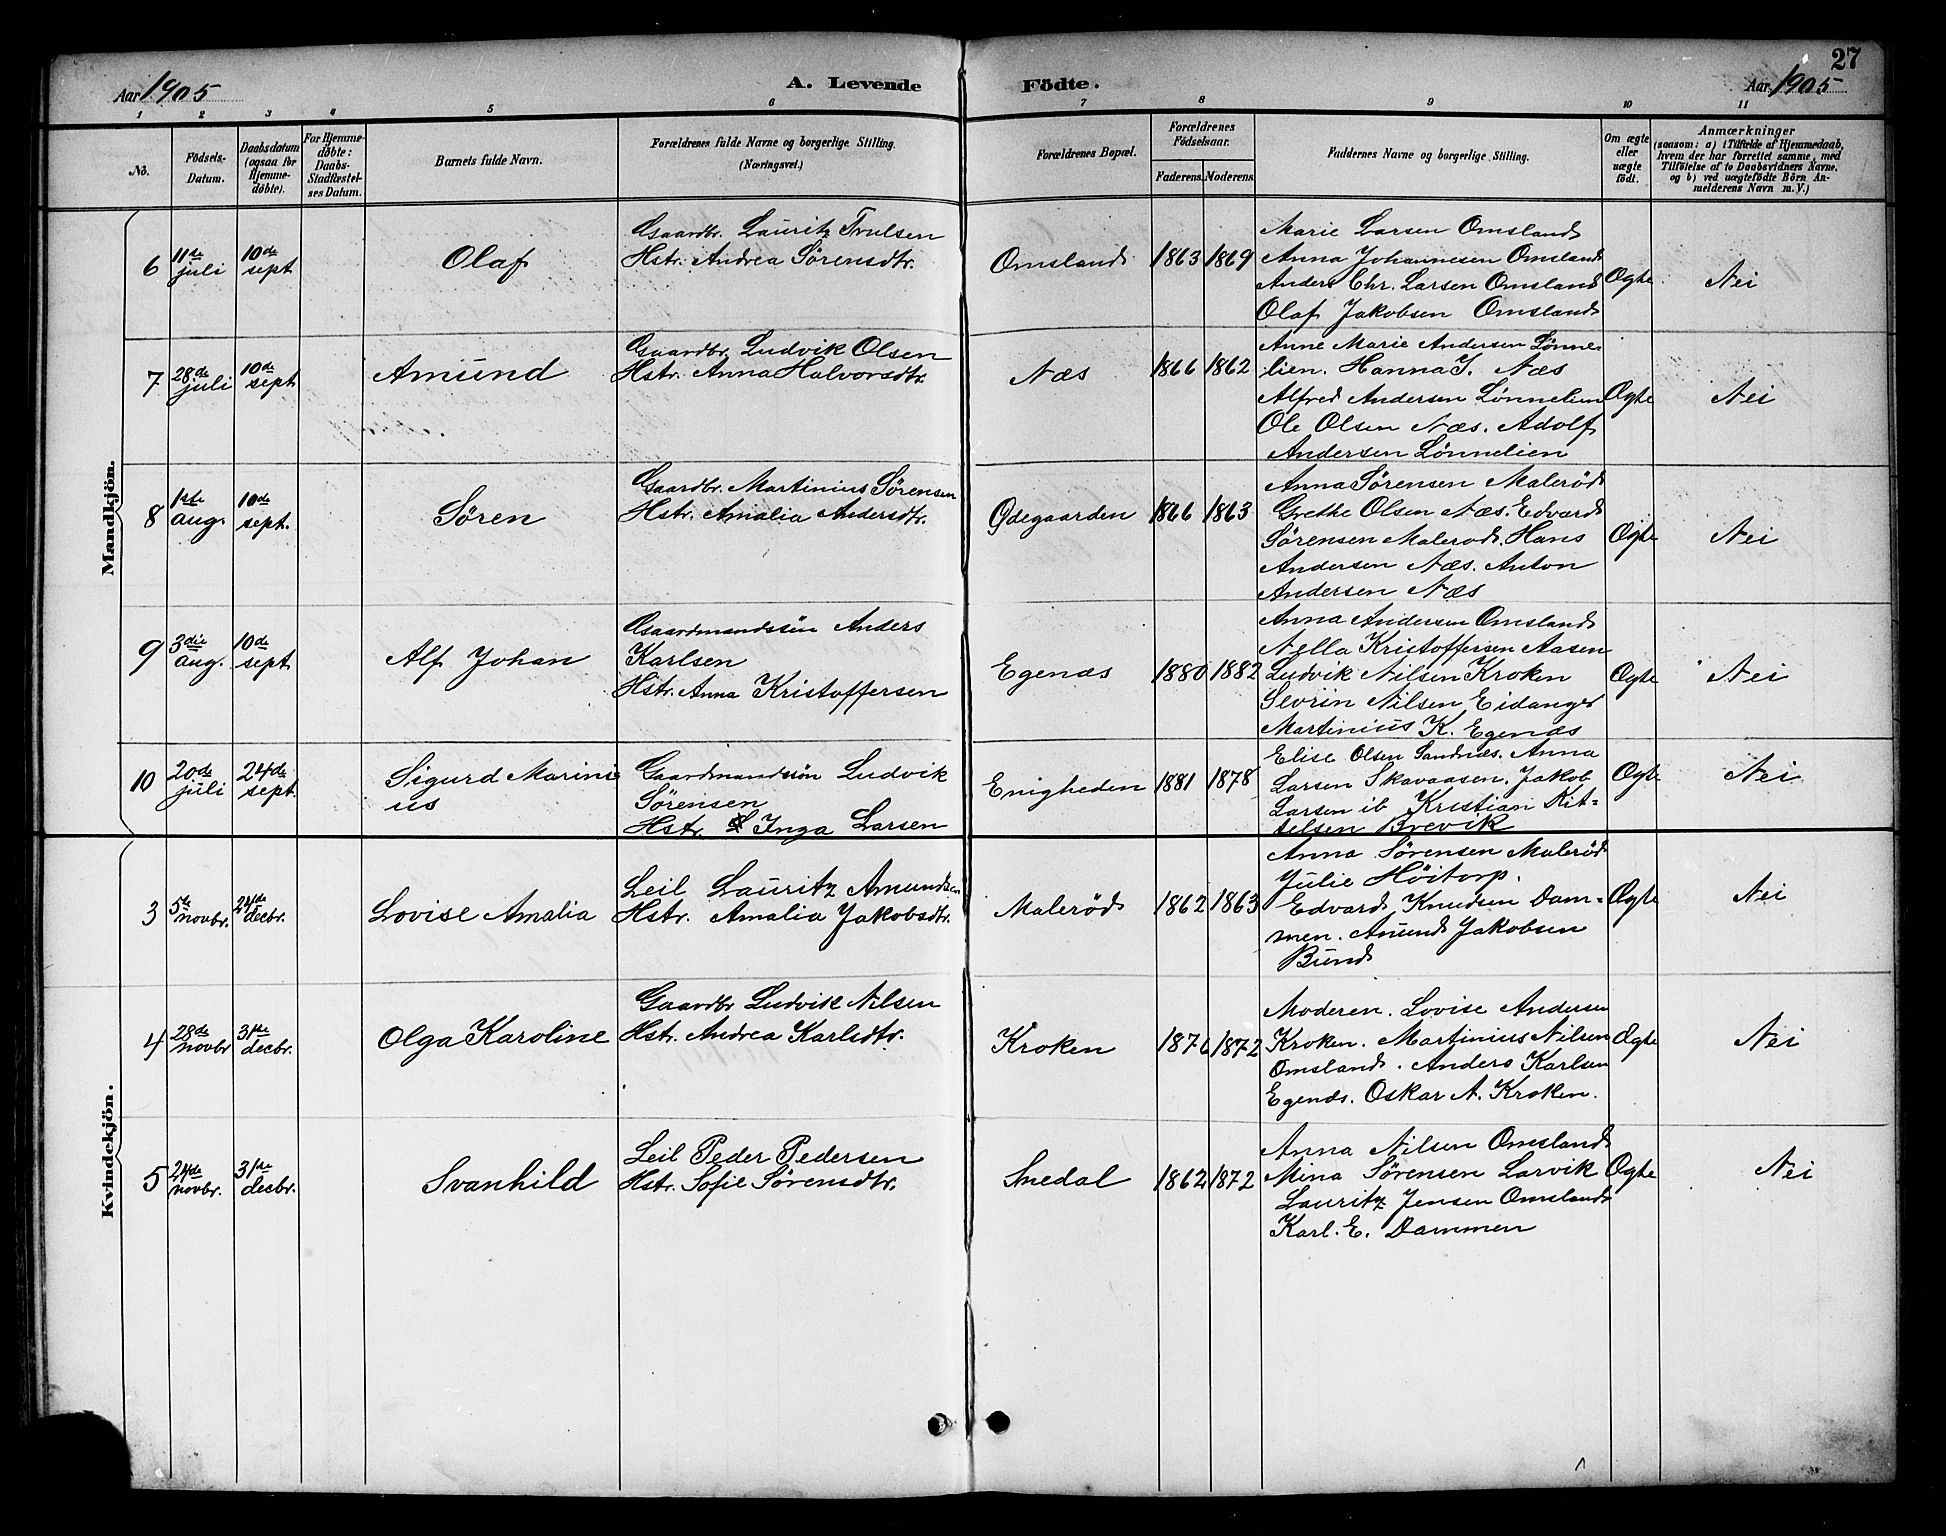 27
Aar 1905
A. Levende Födte.
Aar 1905
1 2 3 4 5 6 7 8 9 10 11
No.
Födsels-Datum.
Daabsdatum (ogsaa for Hjemmedöbte).
For Hjemmedöbte: Daabs-Stadfæstelses Datum.
Barnets fulde Navn.
Forældrenes fulde Navne og borgerlige Stilling. (Næringsvei.)
Forældrenes Bopæl.
Forældrenes Födselsaar.
Faderens. Moderens.
Faddernes Navne og borgerlige Stilling.
Om ægte eller uægte födt.
Anmærkninger
(saasom: a) i Tilfælde af Hjemmedaab, hvem der har forrettet samme, med Tilföielse af to Daabsvidners Navne, og b) ved uægtefödte Börn Anmelderens Navn m. V.)
Mandkjön.
6
11te juli
10de sept
Olaf
Gaardbr. Lauritz Trulsen
Hstr. Andrea Sörensdtr.
Omsland
1863 1869
Marie Larsen Omsland
Anna Johannesen Omsland
Anders Chr. Larsen Omsland
Olaf Jakobsen Omsland
Ægte
Nei
7
28de juli
10de sept
Amund
Gaardbr. Ludvik Olsen
Hstr. Anna Halvorsdtr.
Næs
1866 1862
Anne Marie Andersen Lönne-
lien. Hanna J. Næs
Alfred Andersen Lönnelien
Ole Olsen Næs. Adolf
Andersen Lönnelien
Ægte
Nei
8
1ste aug.
10de sept.
Sören
Gaardbr. Martinius Sörensen
Hstr. Amalia Andersdtr.
Ødegaarden
1866 1863
Anna Sörensen Maleröd
Grethe Olsen Næs. Edvard
Sörensen Malerod. Hans
Andersen Næs. Anton
Andersen Næs
Ægte
Nei
9
3die aug.
10de sept
Alf Johan
Gaardmandssön Anders
Karlsen
Hstr. Anna Kristoffersen
Egenæs
1880 1882
Anna Andersen Omsland
Nella Kristoffersen Aasen
Ludvik Nilsen Kroken
Sevrin Nilsen Eidanger
Martinius K. Egenæs
Ægte
Nei
10
20de juli
24de sept
Sigurd Marini
us
Gaardmandssön Ludvik
Sörensen
Hstr. Inga Larsen
Enigheden
1881 1878
Elise Olsen Sandnæs. Anna
Larsen Skavaasen. Jakob
Larsen ib Kristian Kit-
telsen Brevik
Ægte
Nei
Kvindekjön.
3
5te novbr.
24de decbr.
Lovise Amalia
Leil Lauritz Amundsen
Hstr. Amalia Jakobsdtr.
Maleröd
1862 1863
Anna Sörensen Maleröd
Julie Höitorp.
Edvard Knudsen Dam-
men. Amund Jakobsen
Bund
Ægte
Nei
4
28de novbr
31te decbr.
Olga Karoline
Gaardbr Ludvik Nilsen
Hstr. Andrea Karlsdtr.
Kroken
1876 1872
Moderen. Lovise Andersen
Kroken. Martinius Nilsen
Omsland. Anders Karlsen
Egenæs. Oskar A. Kroken.
Ægte
Nei
5
24de novbr.
31te decbr.
Svanhild
Leil Peder Pedersen
Hstr. Sofie Sörensdtr.
Snedal
1862 1872
Anna Nilsen Omsland
Mina Sörensen Larvik
Lauritz Jensen Omsland
Karl. E. Dammen
Ægte
Nei